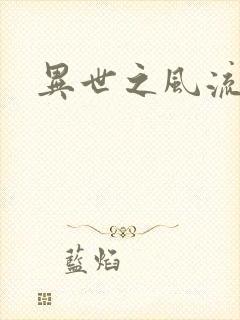 異世之風流
藍焰